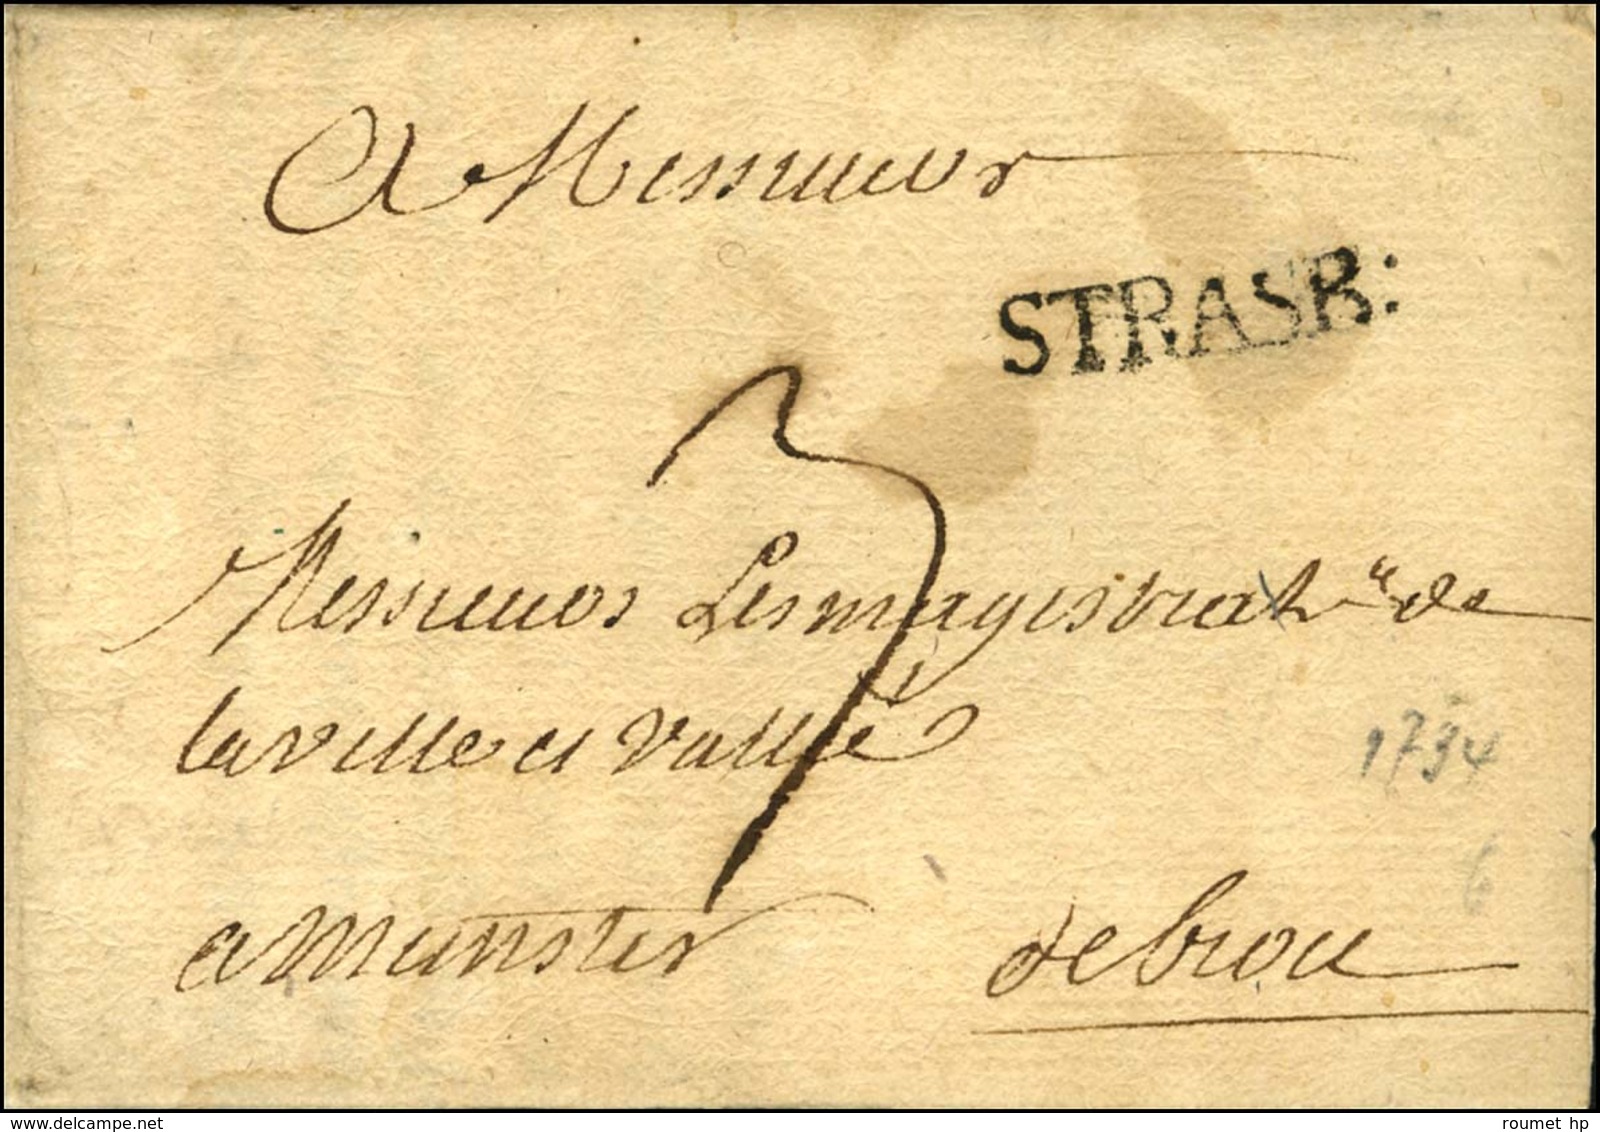 A Messieurs
STRASB:
3
Messieurs Les magistrats de
la ville et vallée
1734
6
a Munster
de brou
delcampe.net
roumet hp